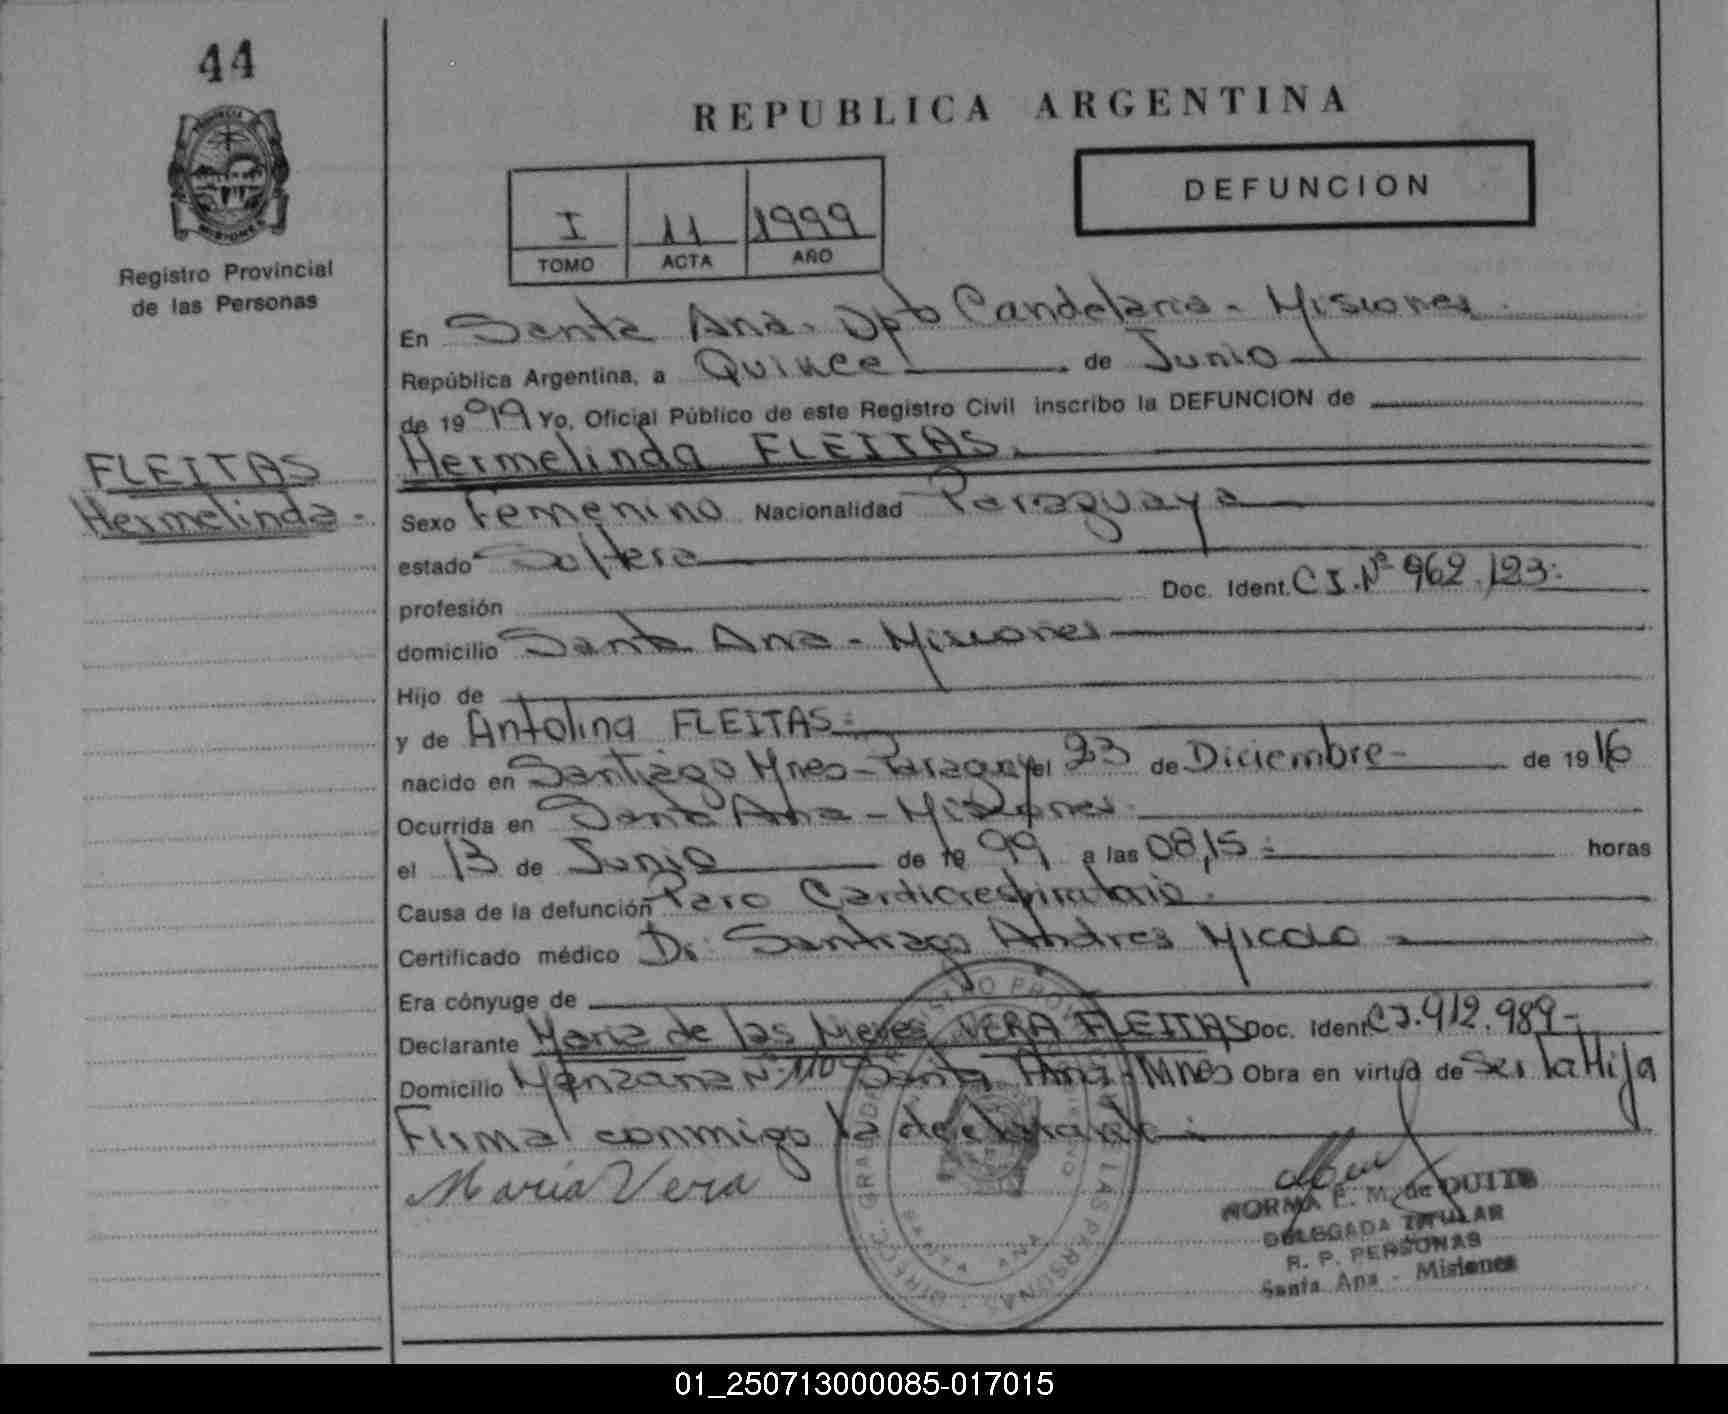 44
REPUBLICA ARGENTINA
DEFUNCION
I 11 1999
TOMO ACTA AÑO
Registro Provincial
de las Personas
En Santa Ana. Dpto Candelaria - Misiones
República Argentina, a Quince de Junio
de 1999 Yo, Oficial Público de este Registro Civil inscribo la DEFUNCION de
FLEITAS
Hermelinda -
Hermelinda FLEITAS.
Sexo Femenino Nacionalidad Paraguaya
estado Soltera
profesión Doc. Ident. C I. Nº 962.123.
domicilio Santa Ana - Misiones
Hijo de
y de Antolina FLEITAS
nacido en Santiago Mnes - Paraguay el 23 de Diciembre - de 1916
Ocurrida en Santa Ana - Misiones.
el 13 de Junio de 1999 a las 08,15 horas
Causa de la defunción Paro Cardiorespiratorio.
Certificado médico Dr. Santiago Andres
Era cónyuge de
Declarante Maria de las Nieves VERA FLEITAS Doc. Ident C I. 912.989-
Domicilio Manzana Nº Santa Ana - Mnes Obra en virtud de Ser la Hija
Firma conmigo la declarante
María Vera
NORMA E. M. de
DELEGADA TITULAR
R. P. PERSONAS
Santa Ana - Misiones
01_250713000085-017015